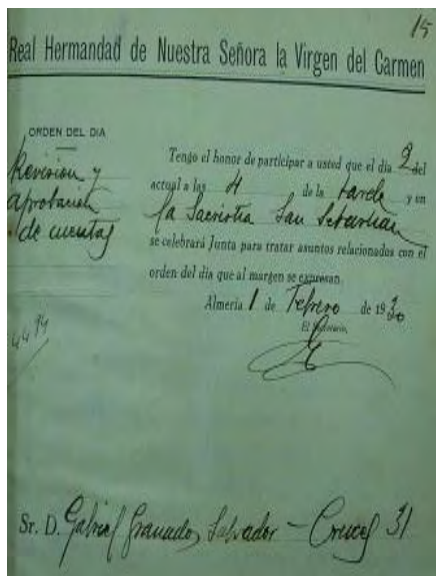 15
Real Hermandad de Nuestra Señora la Virgen del Carmen
ORDEN DEL DIA
Revision y
aprobación
de cuentas
Tengo el honor de participar a usted que el día 2 del
actual a las 4 de la tarde y en
la Sacristia San Sebastian
se celebrará Junta para tratar asuntos relacionados con el
orden del día que al margen se expresan.
Almería 1 de Febrero de 1930
El Secretario,
4494
Sr. D. Gabriel Granados Salvador - Cruces 31